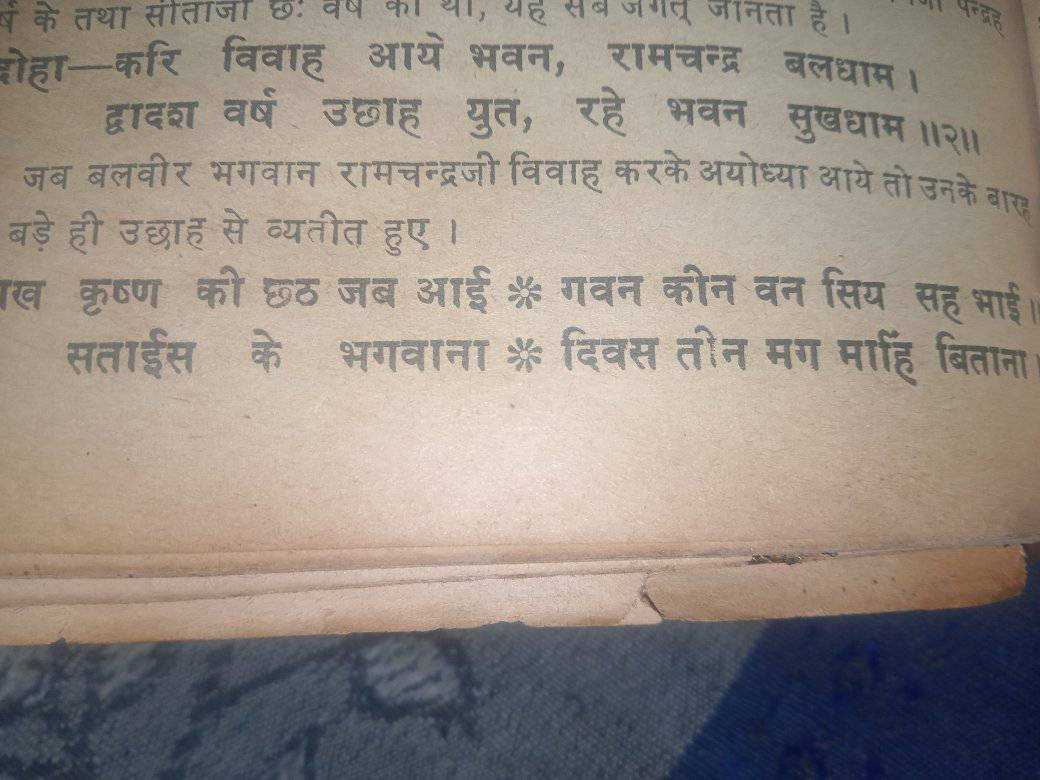 के तथा सीताजी छः वर्ष की थी, यह सब जगत् जानता है । पन्द्रह
दोहा—करि विवाह आये भवन, रामचन्द्र बलधाम ।
द्वादश वर्ष उछाह युत, रहे भवन सुखधाम ॥२॥
जब बलवीर भगवान रामचन्द्रजी विवाह करके अयोध्या आये तो उनके बारह
बड़े ही उछाह से व्यतीत हुए ।
कृष्ण की छठ जब आई ❋ गवन कीन वन सिय सह भाई ॥
सताईस के भगवाना ❋ दिवस तीन मग माहिं बिताना ।